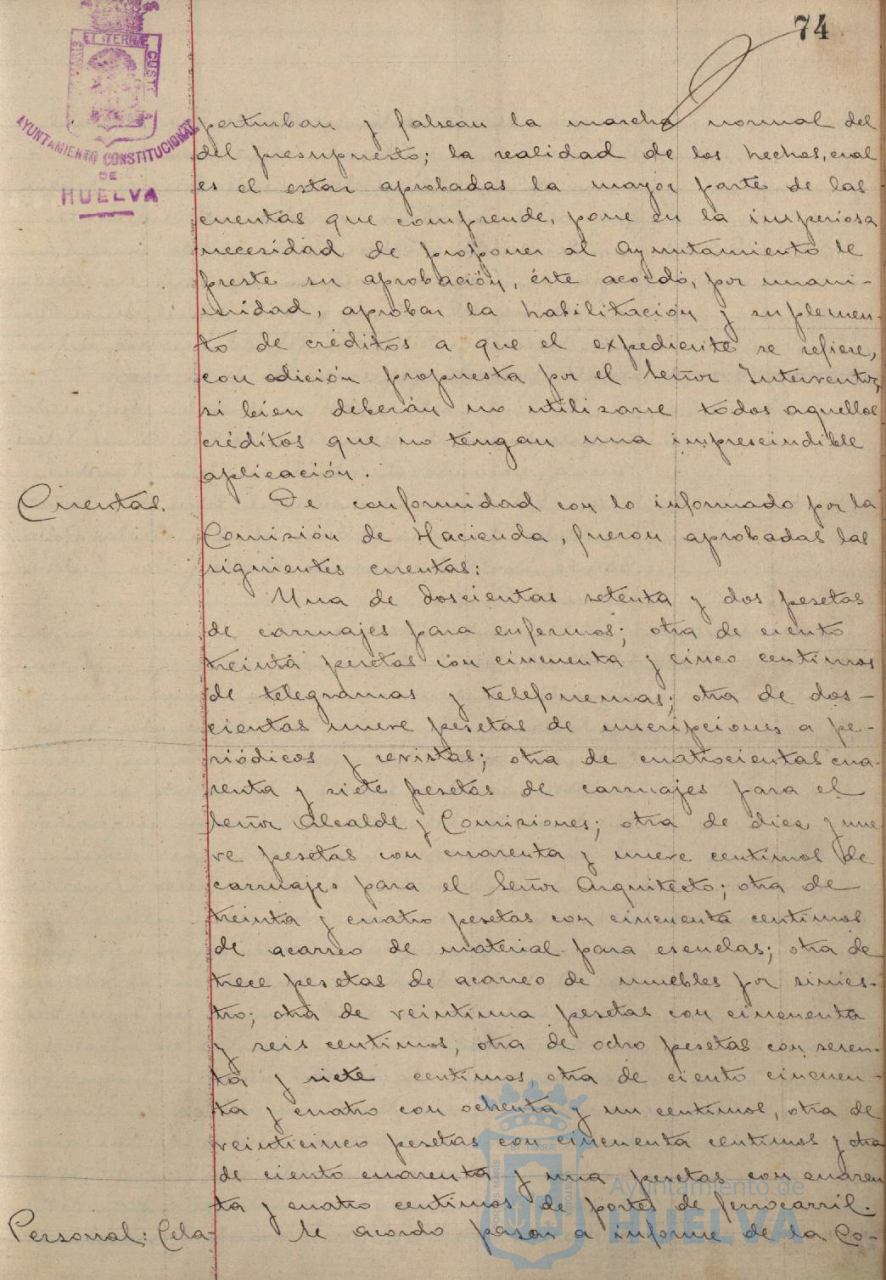 74
ET TERRÆ CUSTO
AYUNTAMIENTO CONSTITUCIONAL
DE
HUELVA
perturban y falsean la marcha normal del
del presupuesto; la realidad de los hechos, cual
es el estar aprobadas la mayor parte de las
cuentas que comprende, pone en la imperiosa
necesidad de proponer al Ayuntamiento le
preste su aprobación, éste acordó, por unani-
midad, aprobar la habilitación y suplemen-
to de créditos a que el expediente se refiere,
con adición propuesta por el Señor Interventor,
si bien deberán no utilizarse todos aquellos
créditos que no tengan una imprescindible
aplicación.
Cuentas. De conformidad con lo informado por la
Comisión de Hacienda, fueron aprobadas las
siguientes cuentas:
Una de doscientas setenta y dos pesetas
de carruajes para enfermos; otra de ciento
treinta pesetas con cincuenta y cinco centimos
de telegramas y telefonemas; otra de dos-
cientas nueve pesetas de inscripciones a pe-
riódicos y revistas; otra de cuatrocientas cua-
renta y siete pesetas de carruajes para el
Señor Alcalde y Comisiones; otra de diez y nue
ve pesetas con cuarenta y nueve centimos de
carruajes para el Señor Arquitecto; otra de
treinta y cuatro pesetas con cincuenta centimos
de acarreo de material para escuelas; otra de
trece pesetas de acarreo de muebles por sinies-
tro; otra de veintiuna pesetas con cincuenta
y seis centimos, otra de ocho pesetas con
ta y siete centimos, otra de ciento cincuen-
ta y cuatro con ochenta y un centimos, otra de
veinticinco pesetas con cincuenta centimos y otra
de ciento cuarenta y una pesetas con cuaren
ta y cuatro centimos de portes de ferrocarril.
Personal: Cela- Se acordo pasar a informe de la Co-
Ayuntamiento de
HUELVA